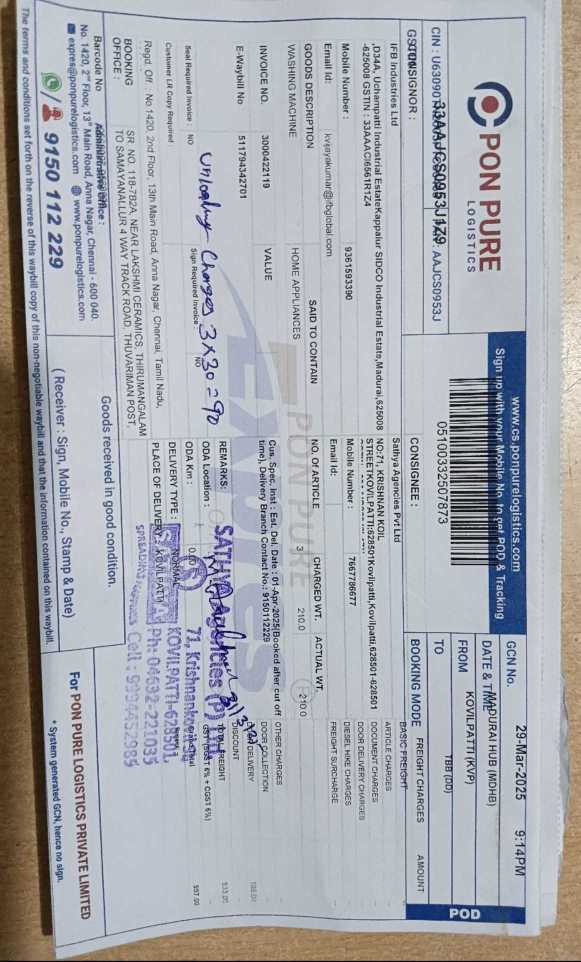 PON PURE
LOGISTICS
CIN : U63090
GSTIN :
33AAJCS0953J1Z9
AAJCS0953J
www.cs.ponpurelogistics.com
Sign up with your Mobile No. to get POD & Tracking
05100332507873
GCN No.
DATE & TIME
29-Mar-2025 9:14PM
FROM
MADURAI HUB (MDHB)
TO
KOVILPATTI (KVP)
BOOKING MODE
TBB (DD)
POD
CONSIGNOR :
IFB Industries Ltd
,D34A, Uchanpatti Industrial EstateKappalur SIDCO Industrial Estate,Madurai,625008
-625008 GSTIN : 33AAACI6561R1Z4
Mobile Number : 9361593390
Email Id: kvijayakumar@ifbglobal.com
CONSIGNEE :
Sathya Agencies Pvt Ltd
NO:71, KRISHNAN KOIL
STREETKOVILPATTI:628501Kovilpatti,Kovilpatti,628501-628501
Mobile Number : 7667786677
Email Id:
FREIGHT CHARGES AMOUNT
BASIC FREIGHT
ARTICLE CHARGES
DOCUMENT CHARGES
DOOR DELIVERY CHARGES
DIESEL HIKE CHARGES
FREIGHT SURCHARGE
OTHER CHARGES
DOOR COLLECTION
DELIVERY
DISCOUNT
TOTAL FREIGHT 533.00
GST (SGST 6% + CGST 6%)
557.00
GOODS DESCRIPTION SAID TO CONTAIN NO. OF ARTICLE CHARGED WT. ACTUAL WT.
WASHING MACHINE HOME APPLIANCES 3 210.0 210.0
INVOICE NO. 3000422119 VALUE
E-Waybill No 511794342701
Cus. Spec. Inst : Est. Del. Date : 01-Apr-2025(Booked after cut off
time), Delivery Branch Contact No.: 9150112229
Unloading Charges 3x30=90
REMARKS:
Seal Required Invoice : NO Sign Required Invoice : NO
Customer LR Copy Required
ODA Location :
ODA Km : 0.00
DELIVERY TYPE : NORMAL
PLACE OF DELIVERY : KOVILPATTI
SATHYA Agencies (P) Ltd
71, Krishnankovil
KOVILPATTI-628501
Ph: 04632-221035
Cell : 9994452985
PON PURE
EXPRES
Regd. Off. : No 1420, 2nd Floor, 13th Main Road, Anna Nagar, Chennai, Tamil Nadu,
BOOKING
OFFICE :
SR. NO. 118-7B2A, NEAR LAKSHMI CERAMICS, THIRUMANGALAM
TO SAMAYANALLUR 4 WAY TRACK ROAD, THUVARIMAN POST,
Barcode No
Administrative Office :
No. 1420, 2nd Floor, 13th Main Road, Anna Nagar, Chennai - 600 040.
expres@ponpurelogistics.com www.ponpurelogistics.com
9150 112 229
Goods received in good condition.
( Receiver : Sign, Mobile No., Stamp & Date)
For PON PURE LOGISTICS PRIVATE LIMITED
* System generated GCN, hence no sign.
The terms and conditions set forth on the reverse of this waybill copy of this non-negotiable waybill and that the information contained on this waybill.